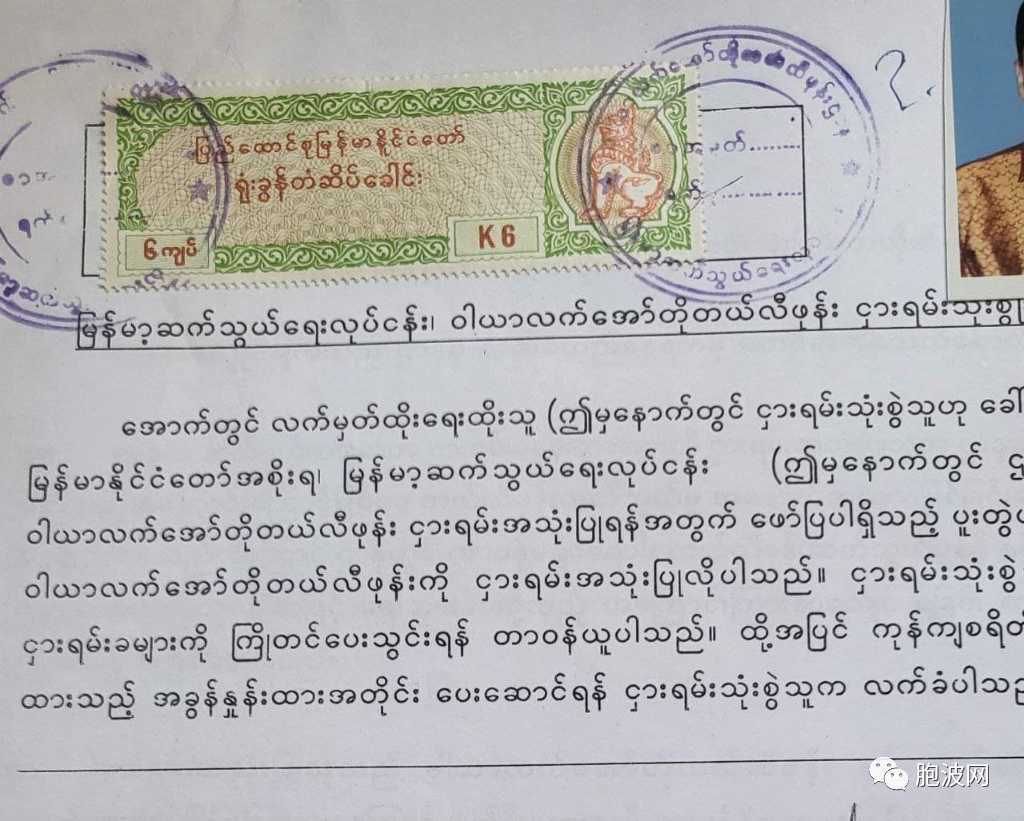 ပြည်ထောင်စုမြန်မာနိုင်ငံတော်
ရုံးခွန်တံဆိပ်ခေါင်း
၆ကျပ်
K6
မြန်မာ့ဆက်သွယ်ရေးလုပ်ငန်း၊ ဝါယာလက်အော်တိုတယ်လီဖုန်း ငှားရမ်းသုံးစွဲ
အောက်တွင် လက်မှတ်ထိုးရေးထိုးသူ (ဤမှနောက်တွင် ငှားရမ်းသုံးစွဲသူဟု ခေါ်
မြန်မာနိုင်ငံတော်အစိုးရ၊ မြန်မာ့ဆက်သွယ်ရေးလုပ်ငန်း (ဤမှနောက်တွင် ဌ
ဝါယာလက်အော်တိုတယ်လီဖုန်း ငှားရမ်းအသုံးပြုရန်အတွက် ဖော်ပြပါရှိသည့် ပူးတွဲပ
ဝါယာလက်အော်တိုတယ်လီဖုန်းကို ငှားရမ်းအသုံးပြုလိုပါသည်။ ငှားရမ်းသုံးစွဲ
ငှားရမ်းခများကို ကြိုတင်ပေးသွင်းရန် တာဝန်ယူပါသည်။ ထို့အပြင် ကုန်ကျစရိတ်
ထားသည့် အခွန်နှုန်းထားအတိုင်း ပေးဆောင်ရန် ငှားရမ်းသုံးစွဲသူက လက်ခံပါသည်
胞波网